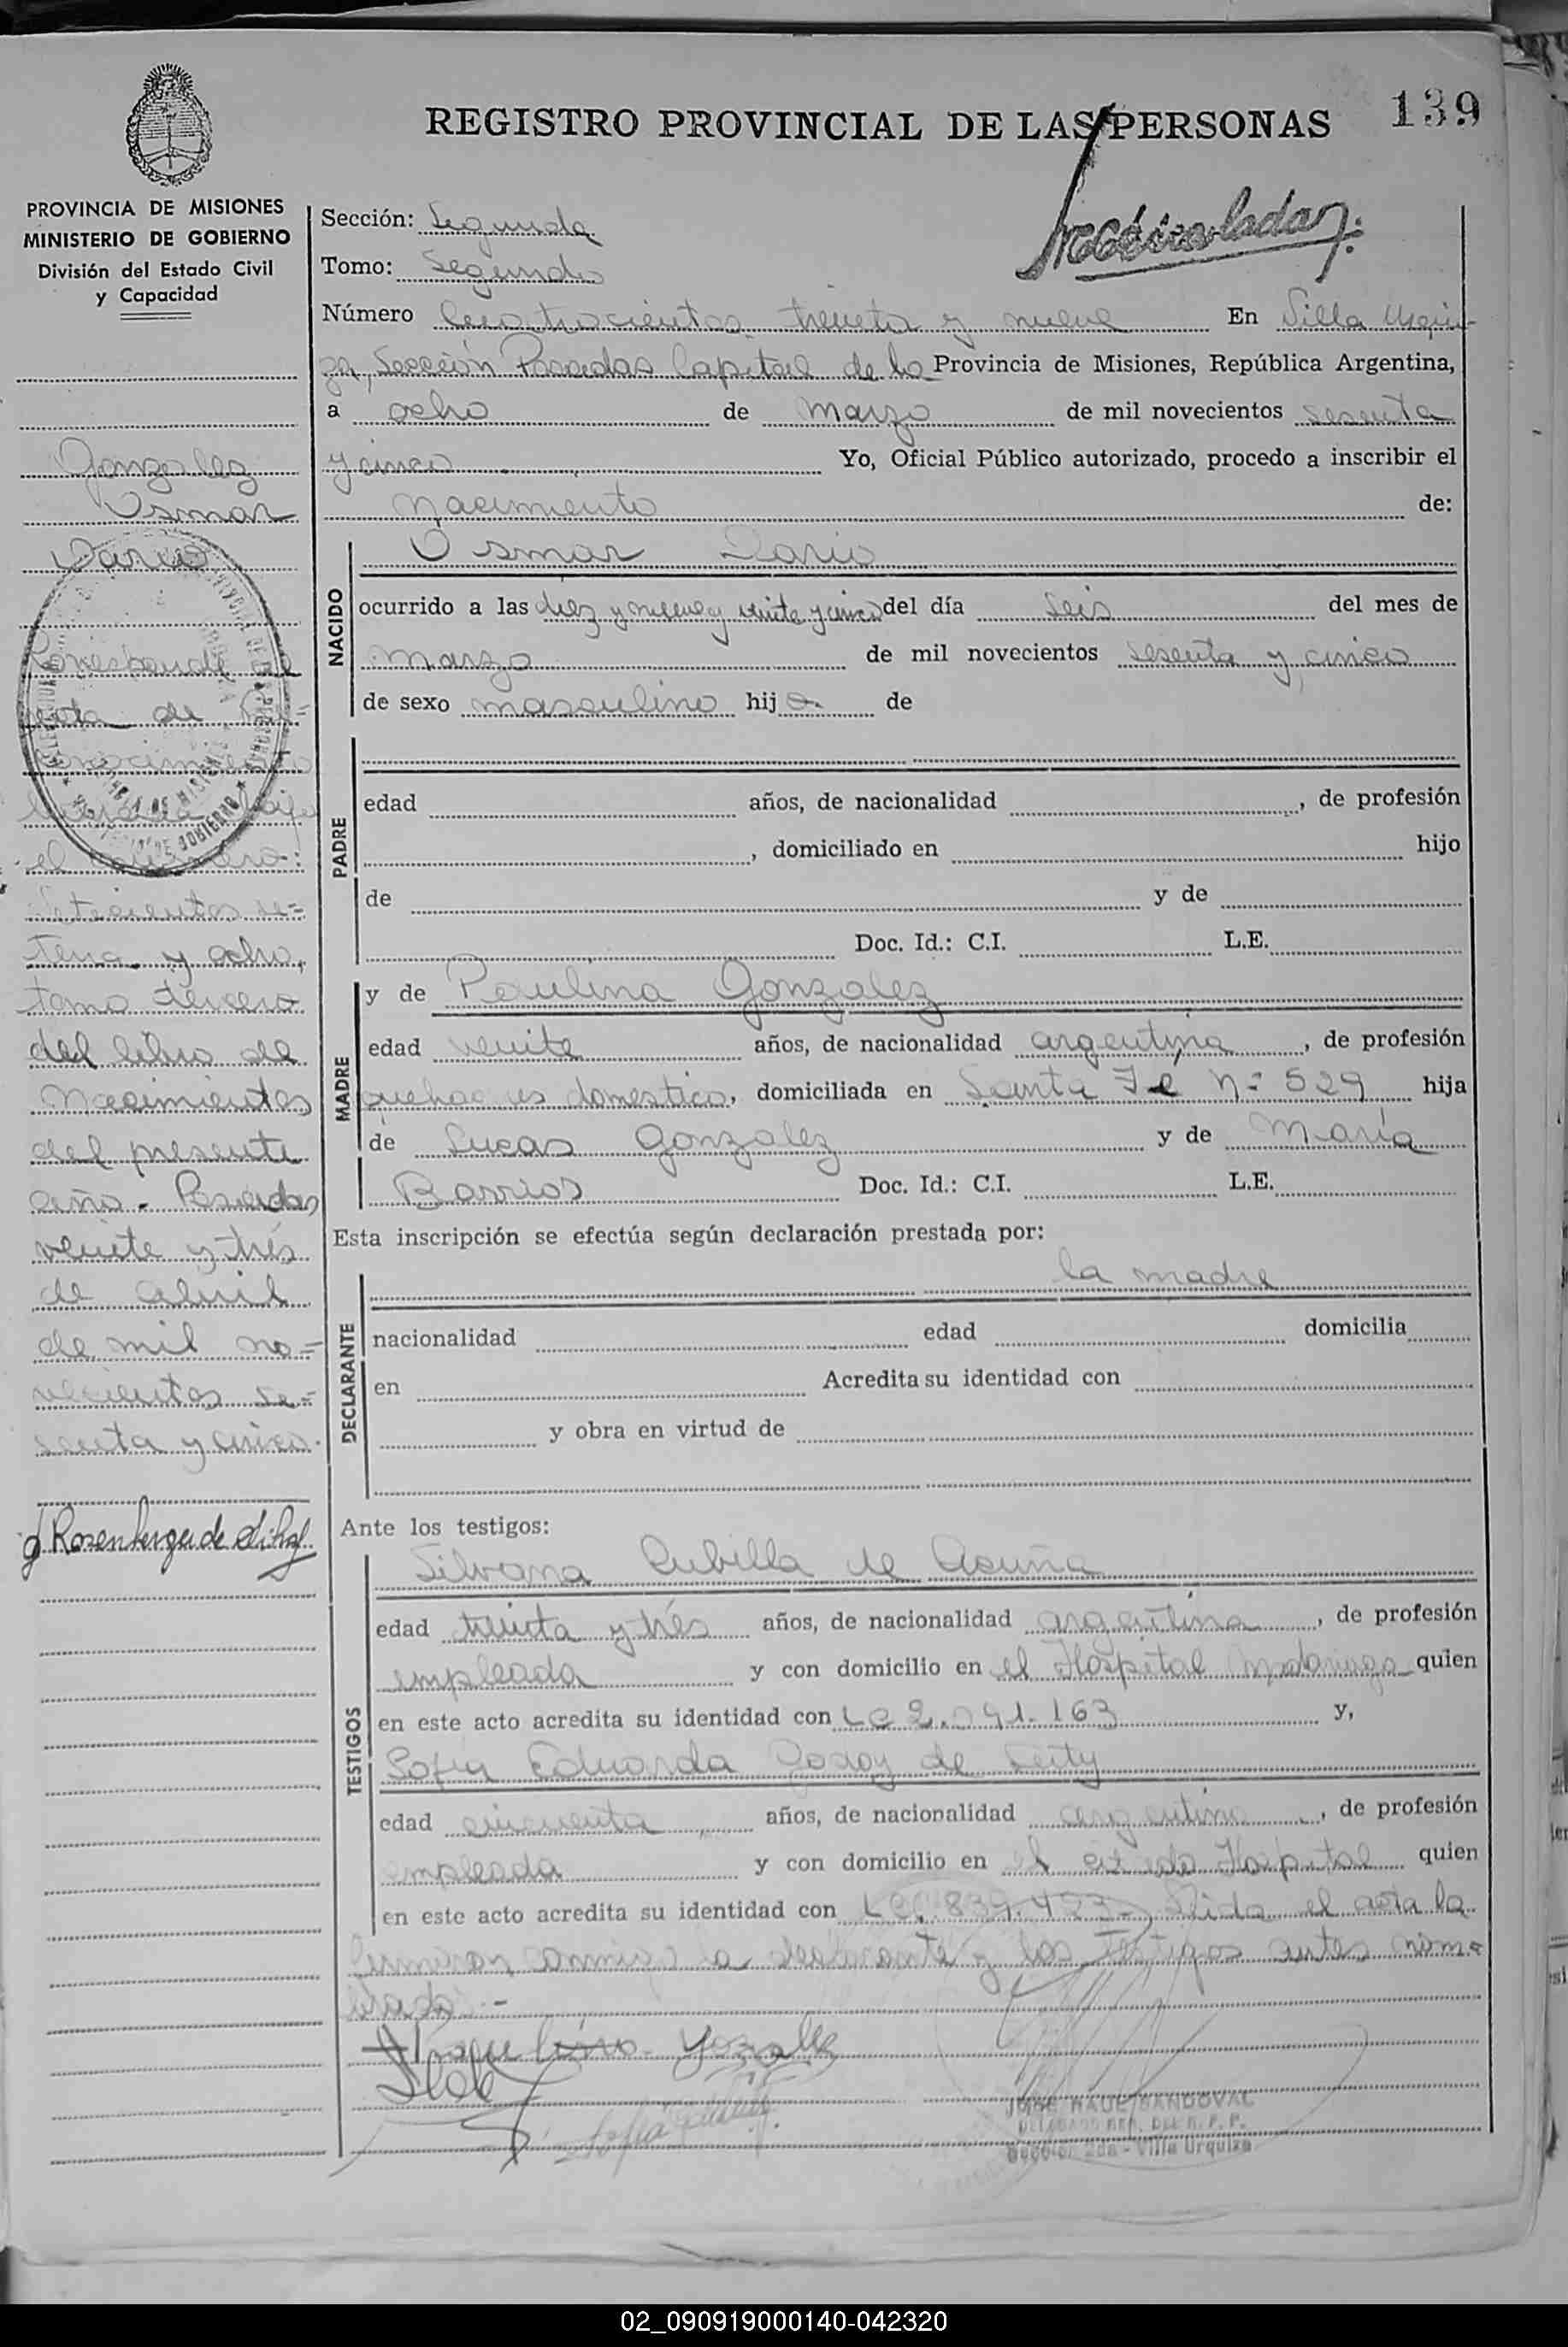 139
REGISTRO PROVINCIAL DE LAS PERSONAS
PROVINCIA DE MISIONES
MINISTERIO DE GOBIERNO
División del Estado Civil
y Capacidad
Gonzalez
Osmar
Dario
Corresponde al
acta de re=
conocimiento
bajo
el número:
Setecientos se=
tenta y ocho,
tomo tercero
del libro de
Nacimientos
del presente
año - Posadas,
veinte y trés
de abril
de mil no=
vecientos se=
senta y cinco.
Sección: Segunda
Tomo: Segundo
Número Cuatrocientos treinta y nueve En Villa Urqui-
za, Sección Posadas Capital de la Provincia de Misiones, República Argentina,
a ocho de marzo de mil novecientos sesenta
y cinco Yo, Oficial Público autorizado, procedo a inscribir el
Nacimiento de:
NACIDO
Osmar Dario
ocurrido a las diez y nueve y veinte y cinco del día seis del mes de
marzo de mil novecientos sesenta y cinco
de sexo masculino hijo de
PADRE
edad años, de nacionalidad , de profesión
, domiciliado en hijo
de y de
Doc. Id.: C.I. L.E.
MADRE
y de Paulina Gonzalez
edad veinte años, de nacionalidad argentina, de profesión
quehaceres domestico, domiciliada en Santa Fe Nº 529 hija
de Lucas Gonzalez y de María
Barrios Doc. Id.: C.I. L.E.
Esta inscripción se efectúa según declaración prestada por:
DECLARANTE
la madre
nacionalidad edad domicilia
en Acredita su identidad con
y obra en virtud de
Ante los testigos:
TESTIGOS
Silvana Cubilla de Acuña
edad treinta y trés años, de nacionalidad argentina, de profesión
empleada y con domicilio en el Hospital Madariaga quien
en este acto acredita su identidad con LC 2.091.163 y,
Sofia Eduarda Godoy de
edad cincuenta años, de nacionalidad argentina, de profesión
empleada y con domicilio en el citado Hospital quien
en este acto acredita su identidad con LC. 839.453- Leida el acta la
firmaron conmigo la declarante y los testigos antes nom=
brados.-
JOSE RAUL SANDOVAL
Sección 2da - Villa Urquiza
02_090919000140-042320